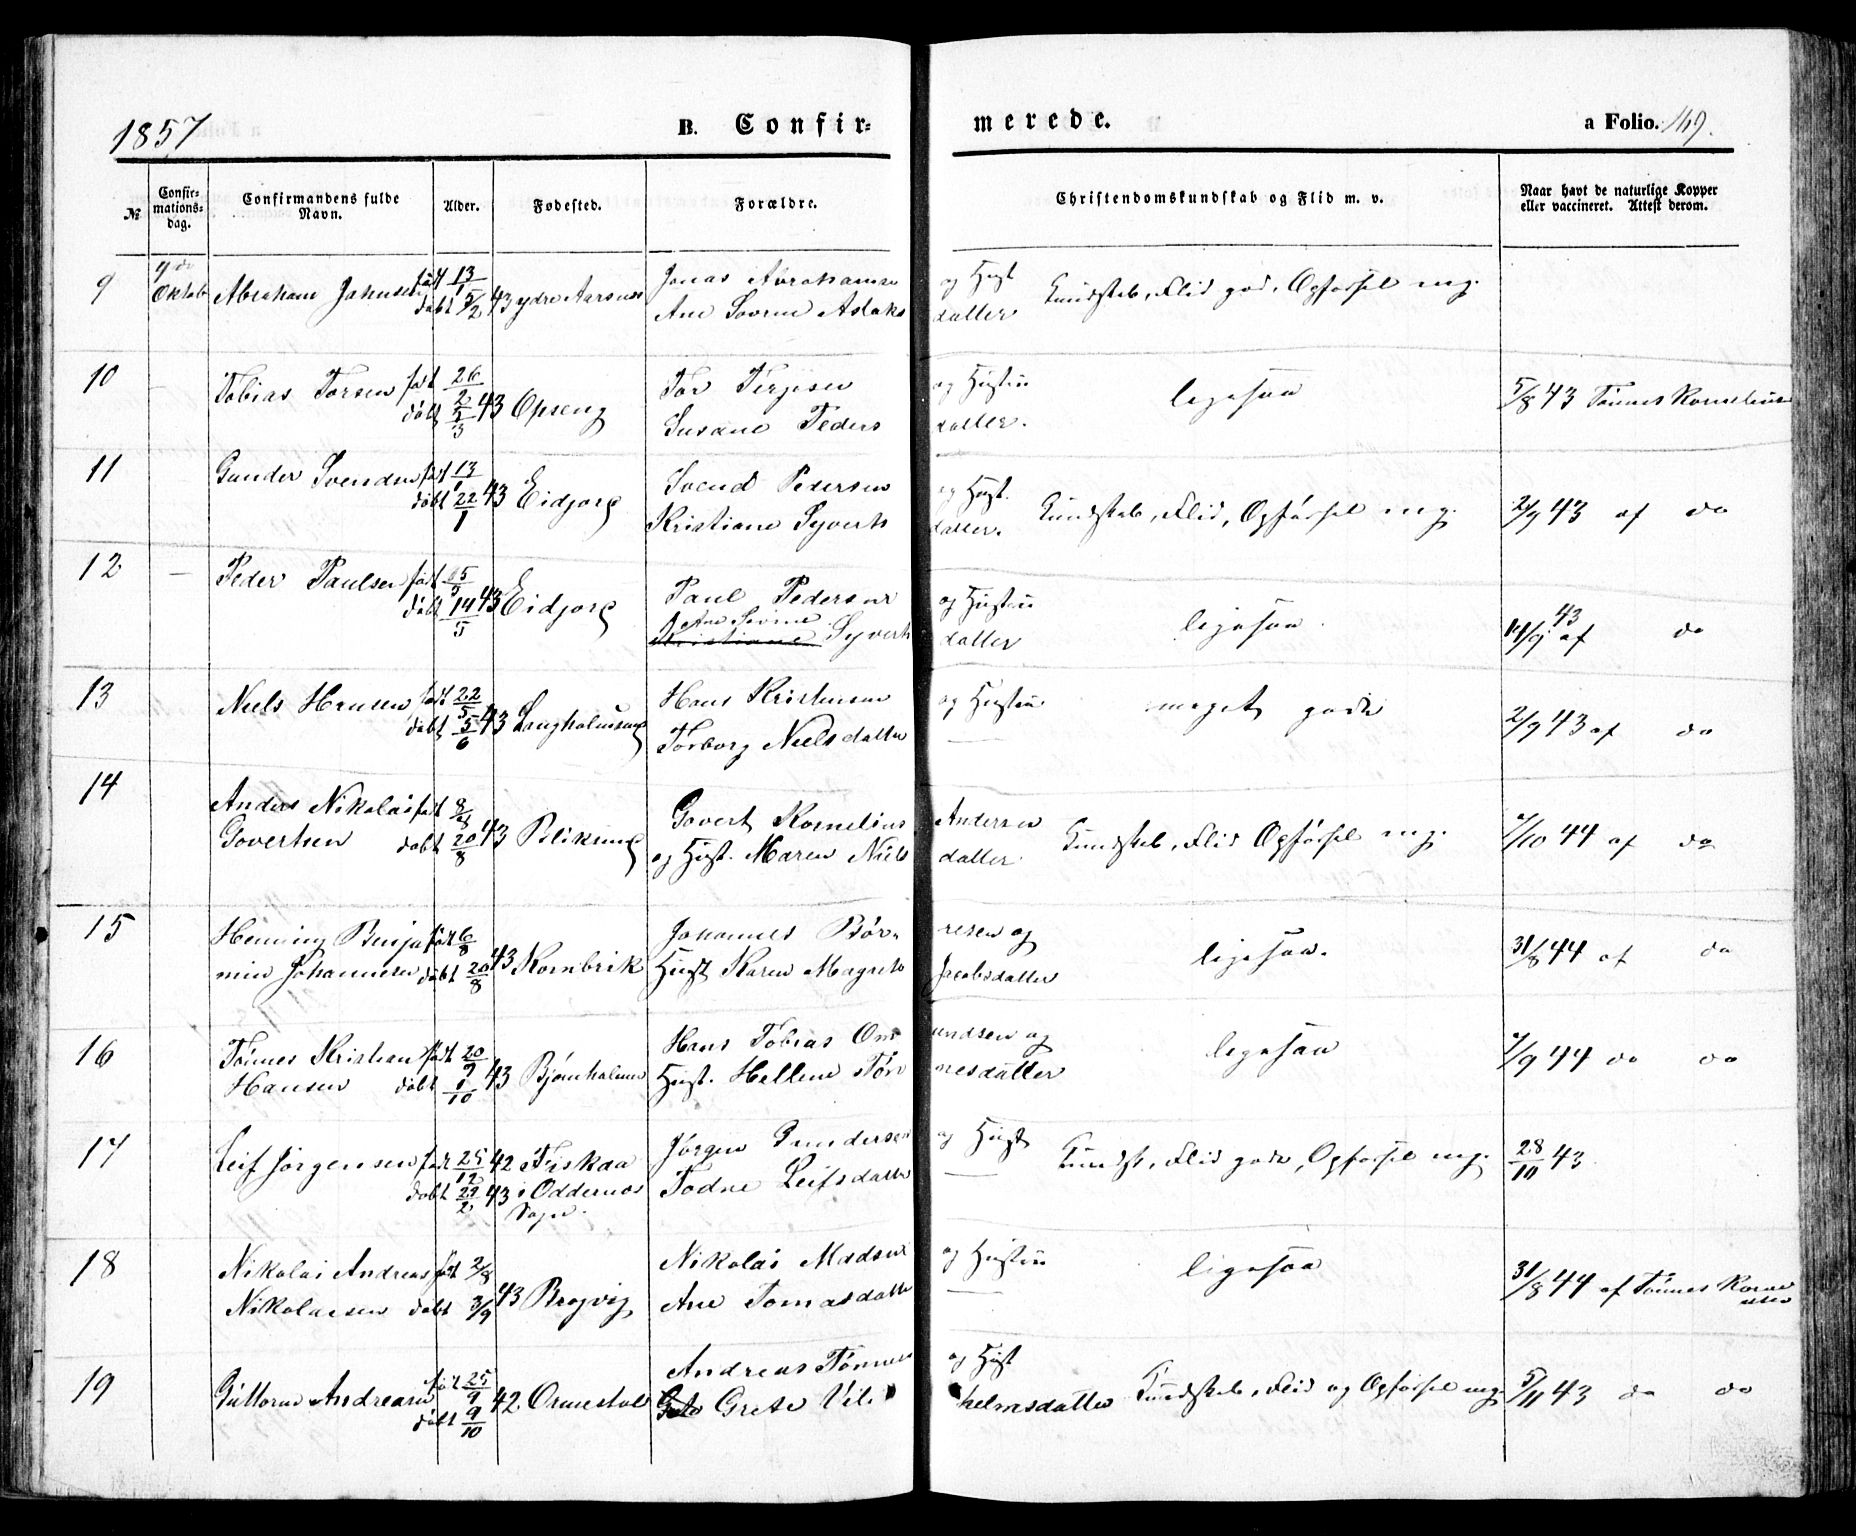 1857
B. Confir-
merede.
a Folio. 149.
№
Confir-
mations-
dag.
Confirmandens fulde
Navn.
Alder.
Fødested.
Forældre.
Christendomskundskab og Flid m. v.
Naar havt de naturlige Kopper
eller vaccineret. Attest derom.
9
4de
Oktob
Abraham Jahnsen
født 13/1
døbt 5/2 43
ydre Aarsnes
Jonas Abrahamsen og Hust
Ane Sovrine Aslaks datter
Kundskab, Flid god, Opførsel mg.
10
Tobias Torsen
født 26/2
døbt 5/3 43
Opseng
Tor Terjesen og Hustru
Susane Peders datter.
ligesaa
5/8 43 Tønnes Kornelius
11
Gunder Svendsen
født 13/1
døbt 22/1 43
Eidjorg
Svend Pedersen og Hust.
Kristiane Syverts datter.
Kundskab, Flid, Opførsel mg.
2/9 43 af do
12
Peder Paulsen
født 5/5
døbt 14/5 43
Eidjorg
Paul Pedersen og Hustru
Ane Sovrine
Kristiane Syverts datter
ligesaa
14/9 43 af do
13
Niels Hansen
født 22/5
døbt 5/6 43
Langholmsund
Hans Kristensen og Hustru
Torborg Nielsdatter
meget gode
2/9 43 af do
14
Anders Nikolai
Govertsen
født 8/8
døbt 20/8 43
Bliksund
Govert Kornelius Andersen
og Hust. Maren Niels datter
Kundskab, Flid Opførsel mg.
7/10 44 af do
15
Henning Benja
min Johannesen
født 6/8
døbt 20/8 43
Kornbrik
Johannes Bør resen og
Hust Karen Magrete Jacobsdatter
ligesaa.
31/8 44 af do
16
Tønnes Kristian
Hansen
født 20/9
døbt 1/10 43
Bjønholmen
Hans Tobias Om undsen og
Hust. Hellene Tøn nesdatter
ligesaa
7/9 44 do do
17
Leif Jørgensen
født 25/12 42
døbt 22/2 43
Fiskaa
i Oddernes
Sogn.
Jørgen Gundersen og Hust
Todne Leifsdatter
Kundsk, Flid gode, Opførsel mg.
28/10 43
18
Nikolai Andreas
Nikolaisen
født 2/8
døbt 3/9 43
Brojvig
Nikolai Madsen og Hustru
Ane Tomasdatter
ligesaa
31/8 44 af Tønnes Korne
19
Guttorm Andreasen
født 25/9
døbt 9/10 42
Ormestad
Andreas Tønnes og Hust
Grete Vil helmsdatter
Kundskab, Flid og Opførsel mg.
5/11 43 do do